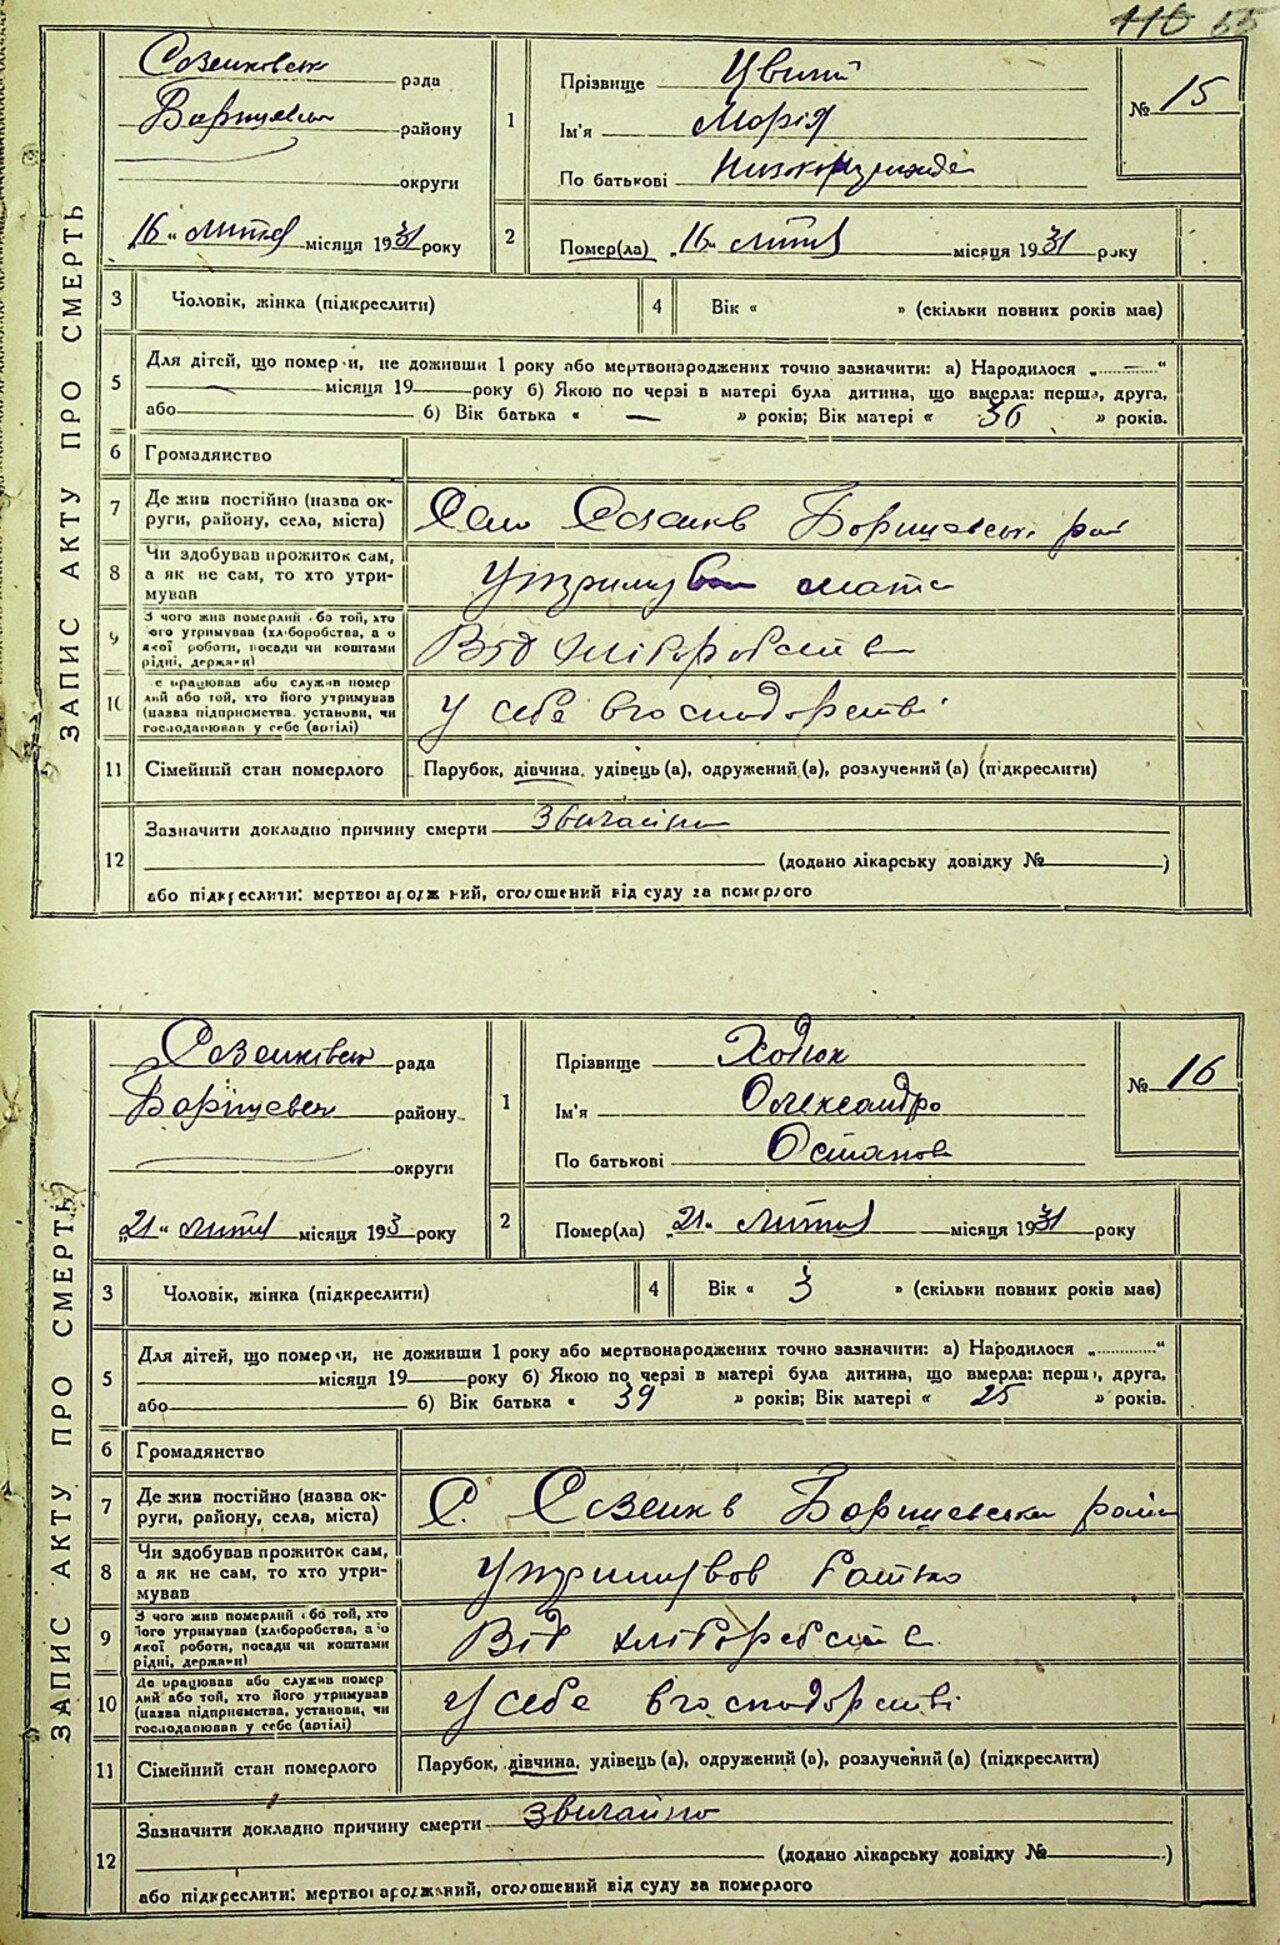 116 55
ЗАПИС АКТУ ПРО СМЕРТЬ
рада
району
округи
„16“ місяця 1931 року
1
Прізвище Цвилі
Ім'я Морія
По батькові
№ 15
2
Помер(ла) „16“ місяця 1931 року
3 Чоловік, жінка (підкреслити)
4 Вік « » (скільки повних років має)
5
Для дітей, що померли, не доживши 1 року або мертвонароджених точно зазначити: а) Народилося „ — “
— місяця 19 року б) Якою по черзі в матері була дитина, що вмерла: перша, друга,
або б) Вік батька « — » років; Вік матері « 36 » років.
6 Громадянство
7
Де жив постійно (назва ок-
руги, району, села, міста)
8
Чи здобував прожиток сам,
а як не сам, то хто утри-
мував
мати
9
З чого жив померлий або той, хто
його утримував (хліборобства, а о
якої роботи, посади чи коштами
рідні, держави)
Від хліборобства
10
Де працював або служив помер
лий або той, хто його утримував
(назва підприємства, установи, чи
господарював у себе (артілі)
у себе в господорстві
11 Сімейний стан померлого
Парубок, дівчина, удівець (а), одружений (а), розлучений (а) (підкреслити)
12
Зазначити докладно причину смерти звичайно
(додано лікарську довідку № )
або підкреслити: мертвонароджений, оголошений від суду за померлого
ЗАПИС АКТУ ПРО СМЕРТЬ
рада
району
округи
„21“ місяця 193 року
1
Прізвище Ходюк
Ім'я Олександро
По батькові Остапов
№ 16
2
Помер(ла) „21“ місяця 1931 року
3 Чоловік, жінка (підкреслити)
4 Вік « 3 » (скільки повних років має)
5
Для дітей, що померли, не доживши 1 року або мертвонароджених точно зазначити: а) Народилося „ “
місяця 19 року б) Якою по черзі в матері була дитина, що вмерла: перша, друга,
або б) Вік батька « 39 » років; Вік матері « 25 » років.
6 Громадянство
7
Де жив постійно (назва ок-
руги, району, села, міста)
С.
8
Чи здобував прожиток сам,
а як не сам, то хто утри-
мував
Утримував батько
9
З чого жив померлий або той, хто
його утримував (хліборобства, а о
якої роботи, посади чи коштами
рідні, держави)
Від хліборобства
10
Де працював або служив помер
лий або той, хто його утримував
(назва підприємства, установи, чи
господарював у себе (артілі)
у себе в господорстві
11 Сімейний стан померлого
Парубок, дівчина, удівець (а), одружений (а), розлучений (а) (підкреслити)
12
Зазначити докладно причину смерти звичайно
(додано лікарську довідку № )
або підкреслити: мертвонароджений, оголошений від суду за померлого